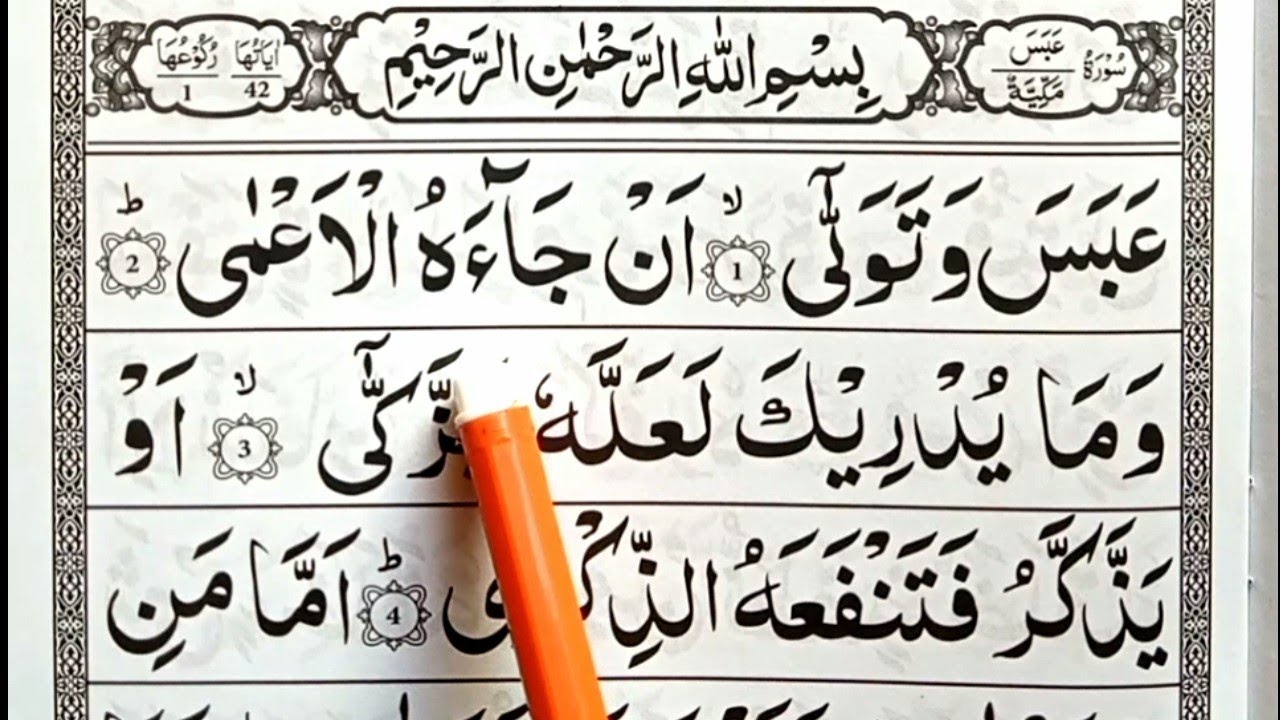 سُوْرَةُ عَبَسَ مَكِّيَّةٌ
بِسْمِ اللّٰهِ الرَّحْمٰنِ الرَّحِيْمِ
اٰيَاتُهَا 42 رُكُوْعُهَا 1
عَبَسَ وَتَوَلّٰٓى ۙ 1 اَنْ جَآءَهُ الْاَعْمٰى ؕ 2
وَمَا يُدْرِيْكَ لَعَلَّهٗ يَزَّكّٰٓى ۙ 3 اَوْ
يَذَّكَّرُ فَتَنْفَعَهُ الذِّكْرٰى ؕ 4 اَمَّا مَنِ